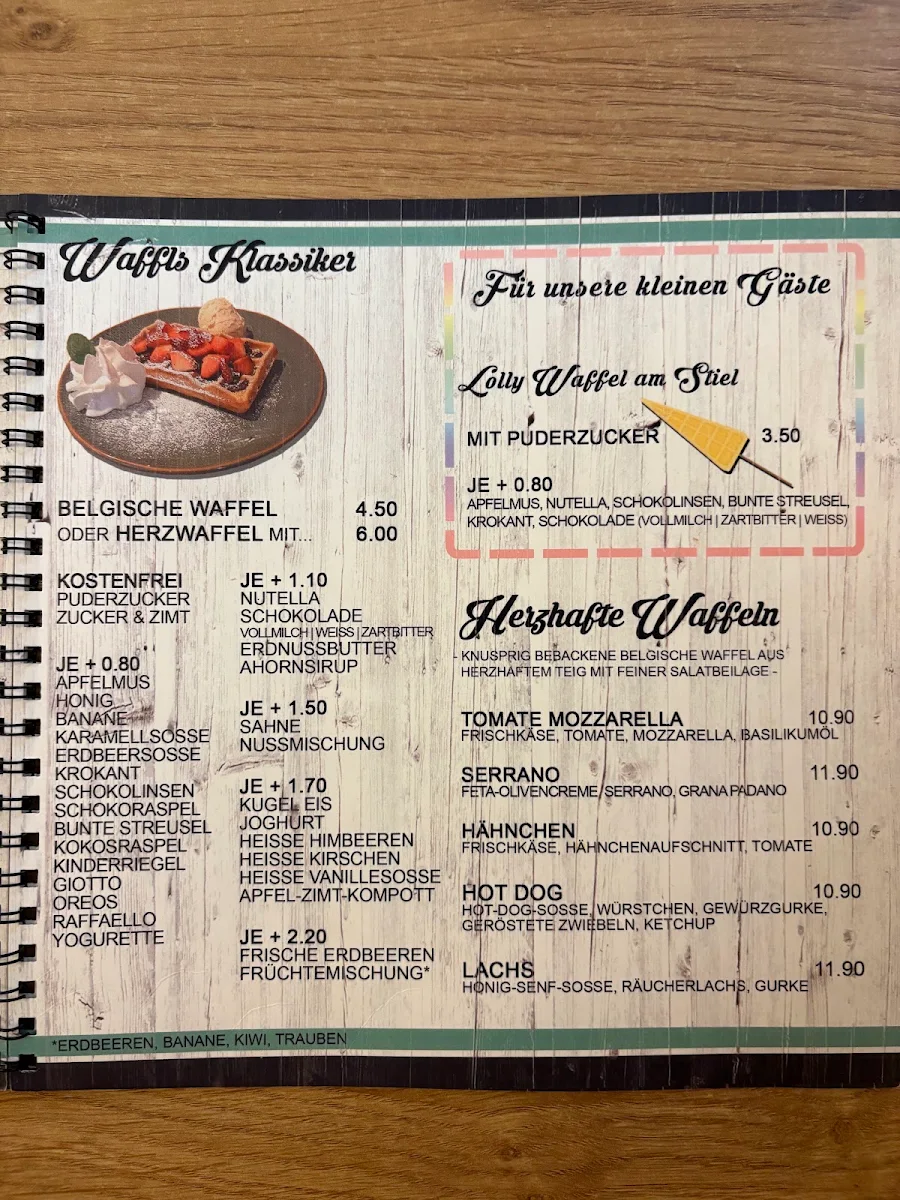 Waffls Klassiker
BELGISCHE WAFFEL 4.50
ODER HERZWAFFEL MIT... 6.00
KOSTENFREI
PUDERZUCKER
ZUCKER & ZIMT
JE + 0.80
APFELMUS
HONIG
BANANE
KARAMELLSOSSE
ERDBEERSOSSE
KROKANT
SCHOKOLINSEN
SCHOKORASPEL
BUNTE STREUSEL
KOKOSRASPEL
KINDERRIEGEL
GIOTTO
OREOS
RAFFAELLO
YOGURETTE
JE + 1.10
NUTELLA
SCHOKOLADE
VOLLMILCH | WEISS | ZARTBITTER
ERDNUSSBUTTER
AHORNSIRUP
JE + 1.50
SAHNE
NUSSMISCHUNG
JE + 1.70
KUGEL EIS
JOGHURT
HEISSE HIMBEEREN
HEISSE KIRSCHEN
HEISSE VANILLESOSSE
APFEL-ZIMT-KOMPOTT
JE + 2.20
FRISCHE ERDBEEREN
FRÜCHTEMISCHUNG*
*ERDBEEREN, BANANE, KIWI, TRAUBEN
Für unsere kleinen Gäste
Lolly Waffel am Stiel
MIT PUDERZUCKER 3.50
JE + 0.80
APFELMUS, NUTELLA, SCHOKOLINSEN, BUNTE STREUSEL,
KROKANT, SCHOKOLADE (VOLLMILCH | ZARTBITTER | WEISS)
Herzhafte Waffeln
- KNUSPRIG BEBACKENE BELGISCHE WAFFEL AUS
HERZHAFTEM TEIG MIT FEINER SALATBEILAGE -
TOMATE MOZZARELLA 10.90
FRISCHKÄSE, TOMATE, MOZZARELLA, BASILIKUMÖL
SERRANO 11.90
FETA-OLIVENCREME, SERRANO, GRANA PADANO
HÄHNCHEN 10.90
FRISCHKÄSE, HÄHNCHENAUFSCHNITT, TOMATE
HOT DOG 10.90
HOT-DOG-SOSSE, WÜRSTCHEN, GEWÜRZGURKE,
GERÖSTETE ZWIEBELN, KETCHUP
LACHS 11.90
HONIG-SENF-SOSSE, RÄUCHERLACHS, GURKE